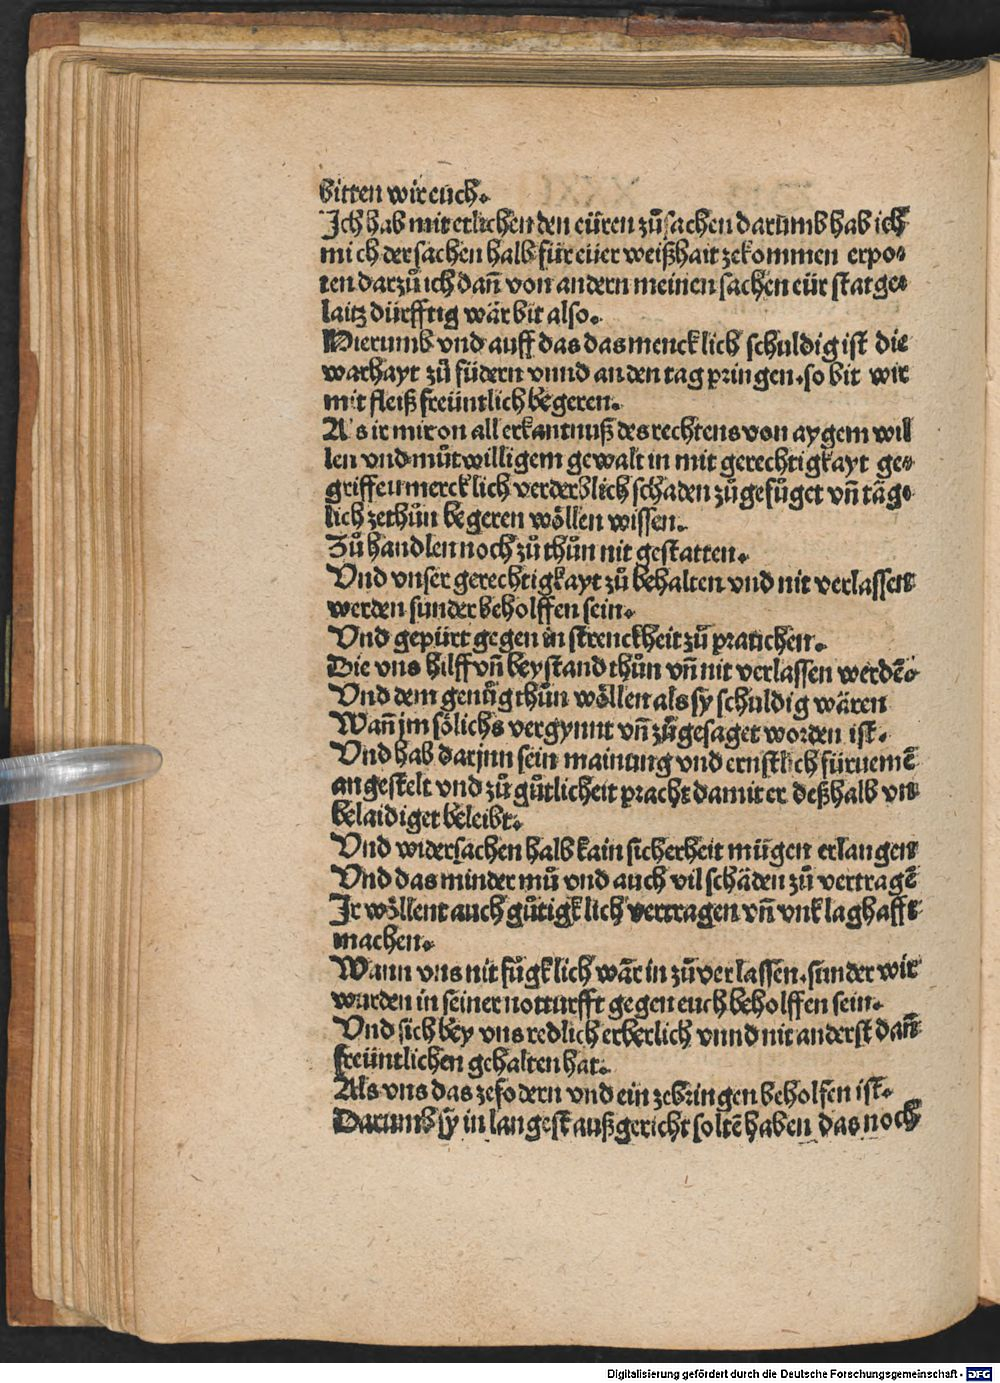 bitten wir euch.
Ich hab mit etlichen den eüren zůsachen darumb hab ich
mich der sachen halb für eüer weißhait zekommen erpo-
ten darzů ich dañ von andern meinen sachen eür stat ge-
laitz dürfftig wär bit also.
Hierumb vnd auff das das mencklich schuldig ist die
warhayt zů füdern vnnd an den tag pringen. so bit wir
mit fleiß freüntlich begeren.
Als ir mir on all erkantnuß des rechtens von aygem wil
len vnd můtwilligem gewalt in mit gerechtigkayt ge-
griffen mercklich verderblich schaden zůgefůget vñ täg-
lich zethůn begeren wöllen wissen.
Zů handlen noch zů thůn nit gestatten.
Vnd vnser gerechtigkayt zů behalten vnd nit verlassen
werden sunder beholffen sein.
Vnd gepürt gegen in strenckheit zů prauchen.
Die vns hilff vñ beystand thůn vñ nit verlassen werdē.
Vnd dem genůg thůn wöllen als sy schuldig wären
Wañ jm sölichs vergynnt vñ zůgesaget worden ist.
Vnd hab darjnn sein mainung vnd ernstlich fürnemē
angestelt vnd zů gůtlicheit pracht damit er deßhalb vn
belaidiget beleibt.
Vnd widersachen halb kain sicherheit mügen erlangen
Vnd das minder mů vnd auch vil schäden zů vertragē
Ir wöllent auch gůtigklich vertragen vñ vnklaghafft
machen.
Wann vns nit fůgklich wär in zůverlassen. sunder wir
wurden in seiner notturfft gegen euch beholffen sein.
Vnd sich bey vns redlich erberlich vnnd nit anderst dañ
freüntlichen gehalten hat.
Als vns das zefodern vnd ein zebringen beholfen ist.
Darumb sÿ in langest außgericht soltē haben das noch
Digitalisierung gefördert durch die Deutsche Forschungsgemeinschaft - DFG